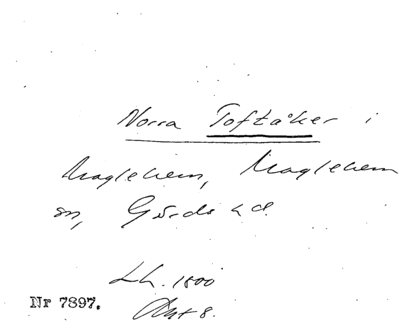 Norra Toftåker i
Maglehem, Maglehem
sn, Gärds hd.
Lh. 1800
Akt 8.
Nr 7897.